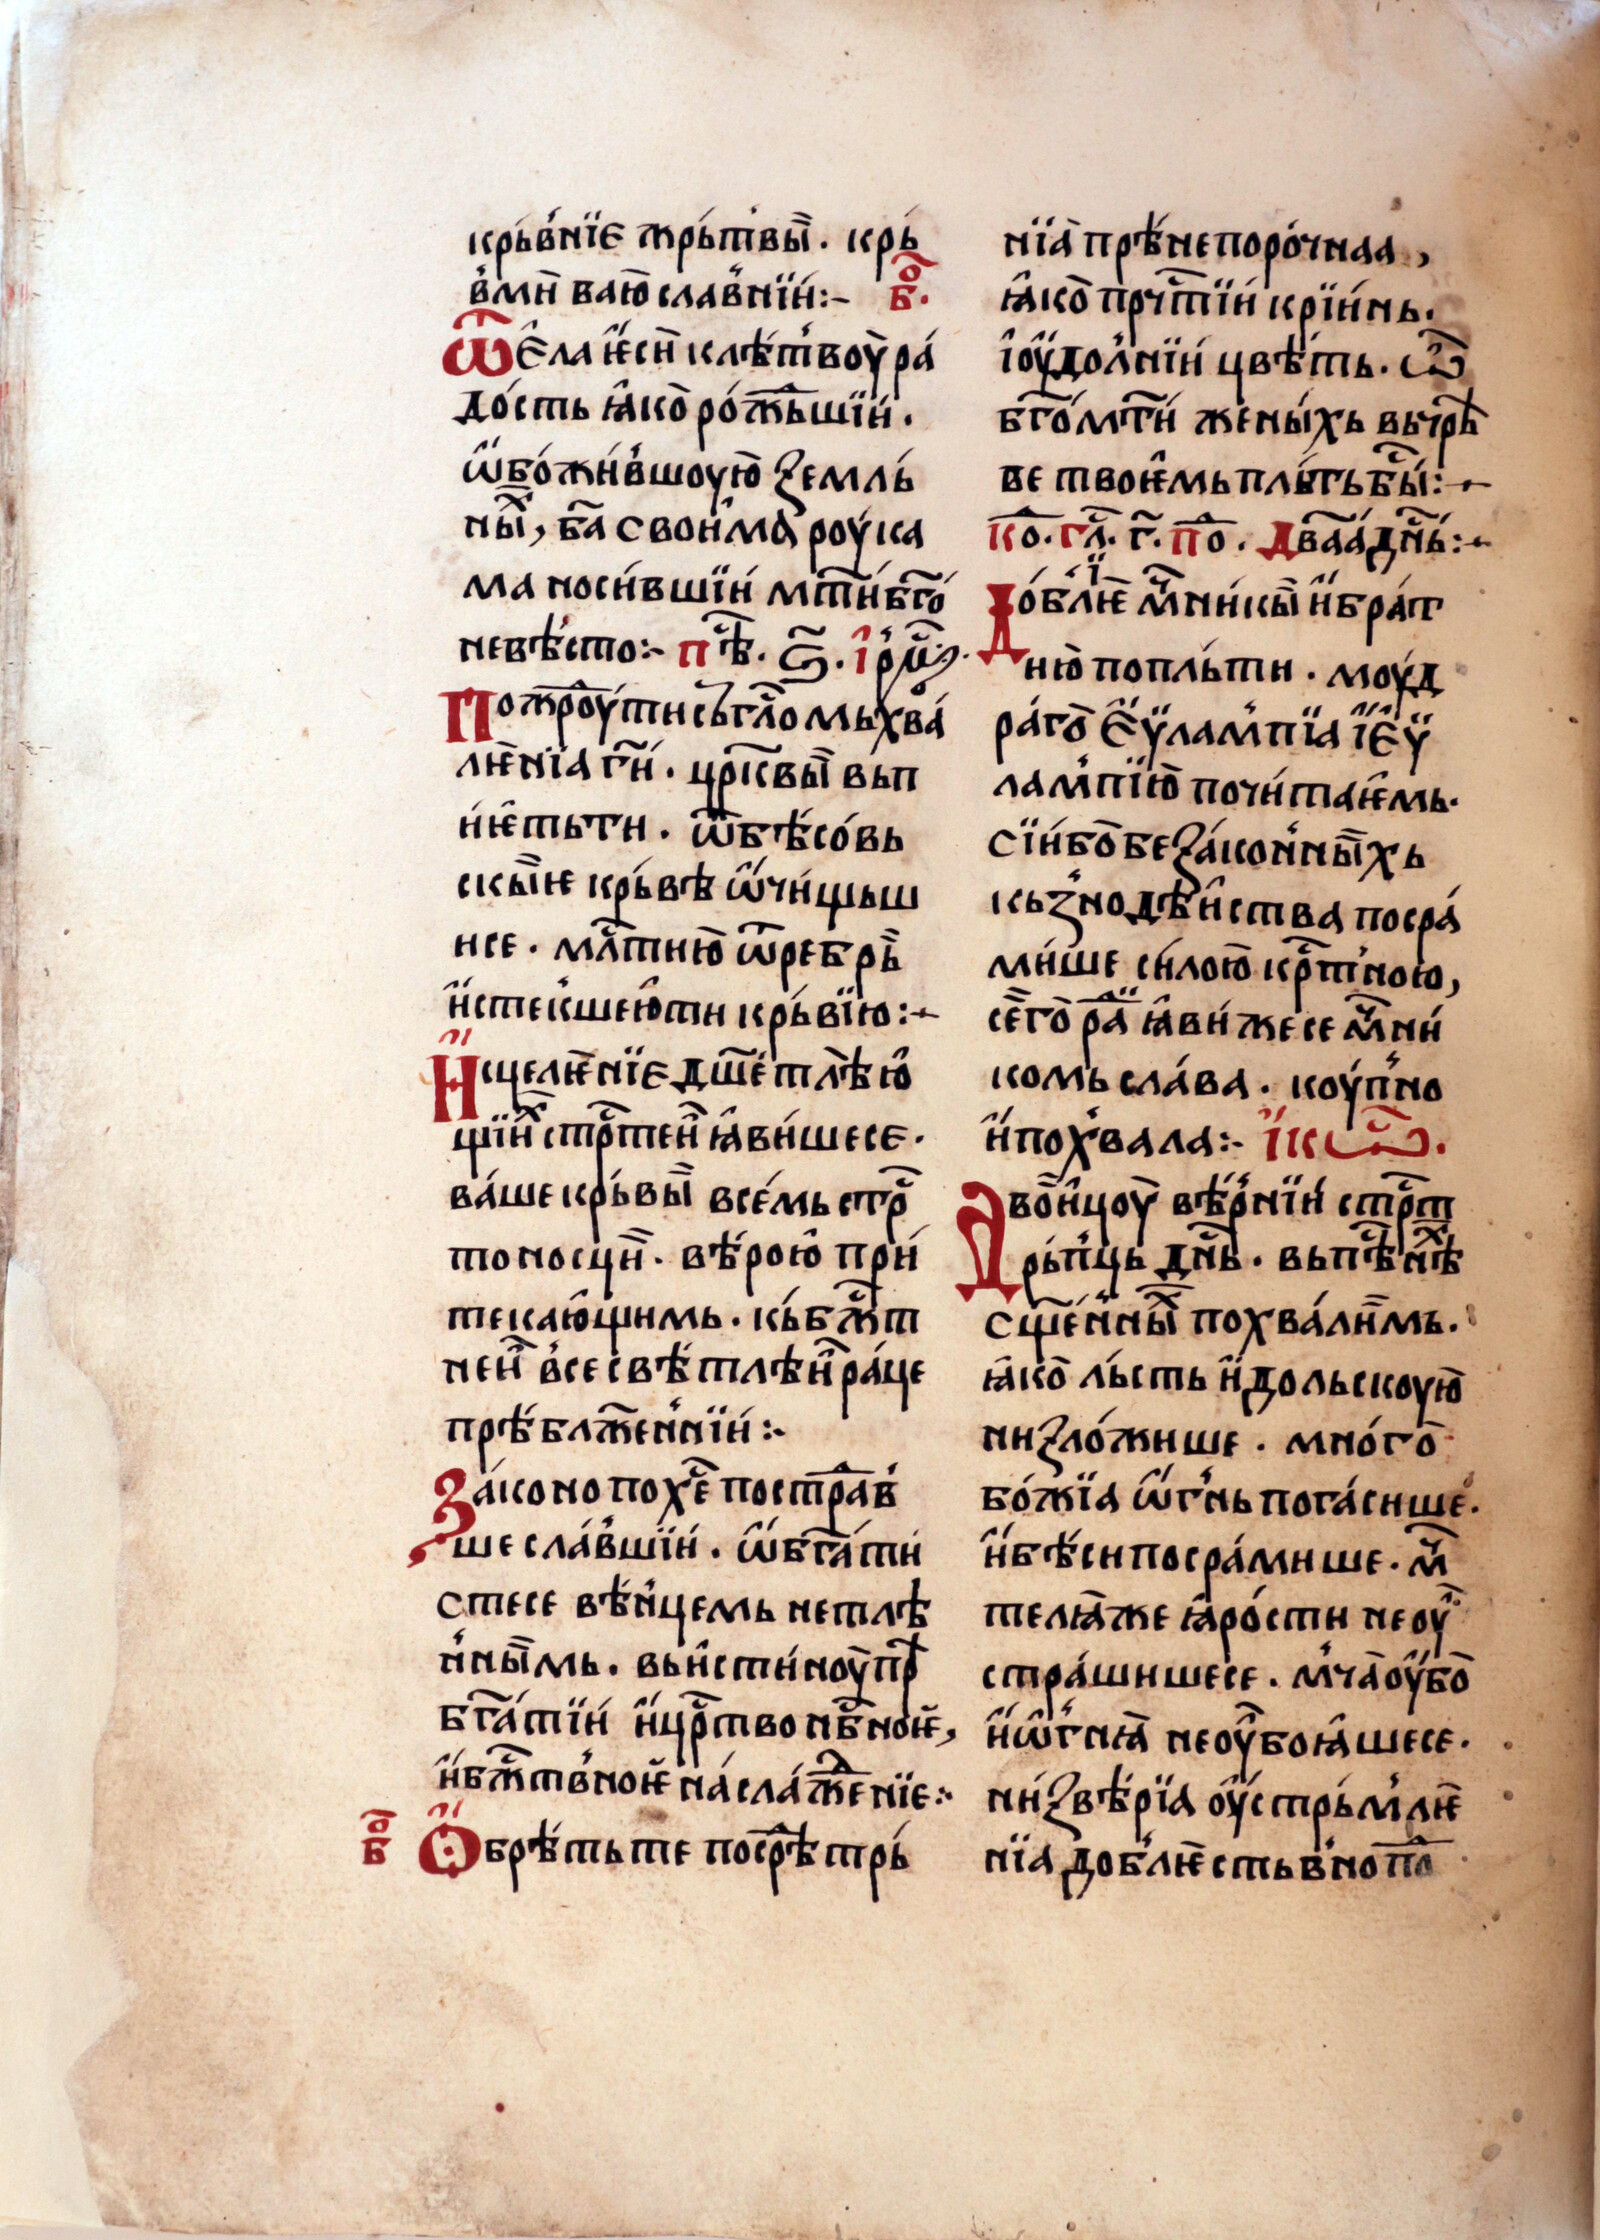 крь́в́нїє жрь́т́вы̏. крь́
в́мѝ ваю̀ слав́нїи:- б҃о.
ѿє́ла ѥ҆сѝ клѣ́т́воу̀ ра́
до́сть ꙗ҆ко̀ ро́ж̑ьшїи.
ѡ҆бо́жи́вшоую̀ ꙁемль́
ны̏х, б҃а свои́ма рꙋка
ма носи́вшїи мт҃и б҃го́
невѣ́сто:- пѣ̑с. ѕ҃. і҆рмѡ҃с.
Пожроу́ти сь гл҃омь хва́
лѥ́нїа г҃и. цр҃квы̏ вьп
и́ѥть ти. ѿ бѣ́со́вь
скы̏ѥ крь́вѣ ѡ҆чи́щьш
исе. мл҃тию̀ ѿ ребрь̀
и҆стеќшею̑ ти крь́вїю:-
И҆сцелѥ́нїє дш҃е́тлѣю̑
щїи̏х стр҃тей ꙗ҆ви́шесе.
ва́ше крь́вы̏ все́мь стр҃
тоносци̏. вѣ́рою̀ при́
текаю̑щимь. кь бж҃т
неи̏ в́се свѣ́тлѣи̏ ра́це
прѣ́бл҃жен́нїи:-
Ꙁа́коно по хе҃ постр҃дав́
ше сла́в́шїи. ѡ҆бг҃ати́
стесе вѣ́н́цемь нетлѣ
н́ны̏мь. вь и҆сти́ноу̀ прѣ
бг҃а́тїи и҆ цр҃тво нб҃ноѥ,
и҆ бж҃тв́ноѥ на́слаж̑денїе:-
б҃о Ѻ҆брѣ́ть те посрѣ̑д трь́
нїа̀ прѣ́непоро́чнаа,
ꙗ҆ко̀ прч҃тїи кри́нь.
і҆оу̑до́л́нїи цвѣ́ть. ѿ
б҃гом҃ти жены́хь вь чрѣ̑
ве твоѥ̑мь пль́ть бы̑с:-
ко. гл҃. г҃. по. Два а҆ дн҃ь:-
До́бл́їѥ мч҃ни́кы̏ и҆ брат
нїю̀ по пль́ти. моу́д
ра́го̀ Є҆ѵ̈лам́пїа і҆ Є҆ѵ̈
лам́пїю̀ почи́таѥ̑мь.
сїи́ бо̀ беꙁа́кон́ны̏хь
кьꙁ́нодѣ́и̑ства посра́
ми́ше си́лою̀ кр҃т́ною,
се́го̀ ра̑ди ꙗ҆ви́жесе мч҃ни́
комь сла́ва. коу́п́но
и҆ пох́вала:- і҆кѡ҃с.
Дво̀и́цоу̀ вѣ́р́нїи стр҃т
рь́п́ць дн҃ь. вь пѣ̑сн́ѣх
сщ҃е́н́ны̏х пох́ва́ли̏мь.
ꙗ҆ко̀ ль́сть и҆дольскоую̀
ниꙁло́жише. мно́го̀
бо́жїа ѡ҆ѓнь пога́сише.
и҆ бѣ́си посра́мише. мч҃
телꙗ̀же ꙗ҆ро́сти не оу̑
стра́шишесе. м́ча̀ оу҆бо̀
и҆ ѡ҆ѓнꙗ̀ не оу҆боꙗ̑шесе.
ни́ ꙁвѣ́рїа оу҆стрь́м́лѥ
нїа до́бл́ѥсть в́но по̑д